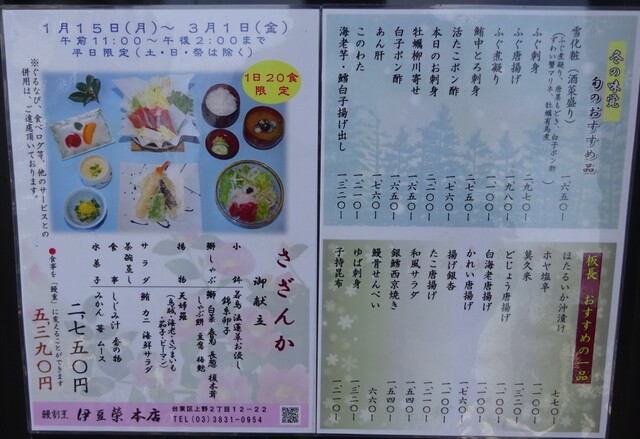 1月15日(月)～ 3月1日(金)
午前11:00～ 午後2:00まで
平日限定(土・日・祭は除く)
1日20食
限定
※ぐるなび、食べログ等、他のサービスとの
併用は、ご遠慮頂いております。
さざんか
御献立
小鉢 若鳥 法蓮草お浸し
錦糸卵子
鰤しゃぶ 鰤 白菜 春菊 長葱 榎木茸
しゃぶ餅 豆腐 梅麩
揚物 天婦羅
(烏城・海老・さつまいも
・茄子・ピーマン)
サラダ 鮪 カニ 海鮮サラダ
茶碗蒸し
食事 しじみ汁 香の物
水菓子 みかん 苺 ムース
二、七五〇円
●食事を《鰻重》に変えることができます
五、三九〇円
鰻割烹 伊豆榮 本店
台東区上野2丁目12－22
TEL(03)3831-0954
冬の味覚
旬のおすすめ品
雪化粧(酒菜盛り) 一、六五〇-
(ふぐ煮凝り、唐墨もどき、白子ポン酢
ずわい蟹マリネ、牡蠣有馬煮)
ふぐ刺身 二、九七〇-
ふぐ唐揚げ 一、九八〇-
ふぐ煮凝り 一、一〇〇-
鮪中とろ刺身 二、七五〇-
活たこポン酢 一、七六〇-
本日のお刺身 二、二〇〇-
牡蠣柳川寄せ 一、六五〇-
白子ポン酢 一、六五〇-
あん肝 一、七六〇-
このわた 一、二一〇-
海老芋・鱈白子揚げ出し 一、三二〇-
板長 おすすめの一品
ほたるいか沖漬け 七七〇-
ホヤ塩辛
莫久来 一、一〇〇-
どじょう唐揚げ 一、三二〇-
白海老唐揚げ 一、一〇〇-
かれい唐揚げ 一、七六〇-
揚げ銀杏
たこ唐揚げ 一、二一〇-
和風サラダ 一、五四〇-
銀鱈西京焼き 一、五四〇-
鰻骨せんべい 六六〇-
ゆば刺身 一、三二〇-
子持昆布 一、二一〇-